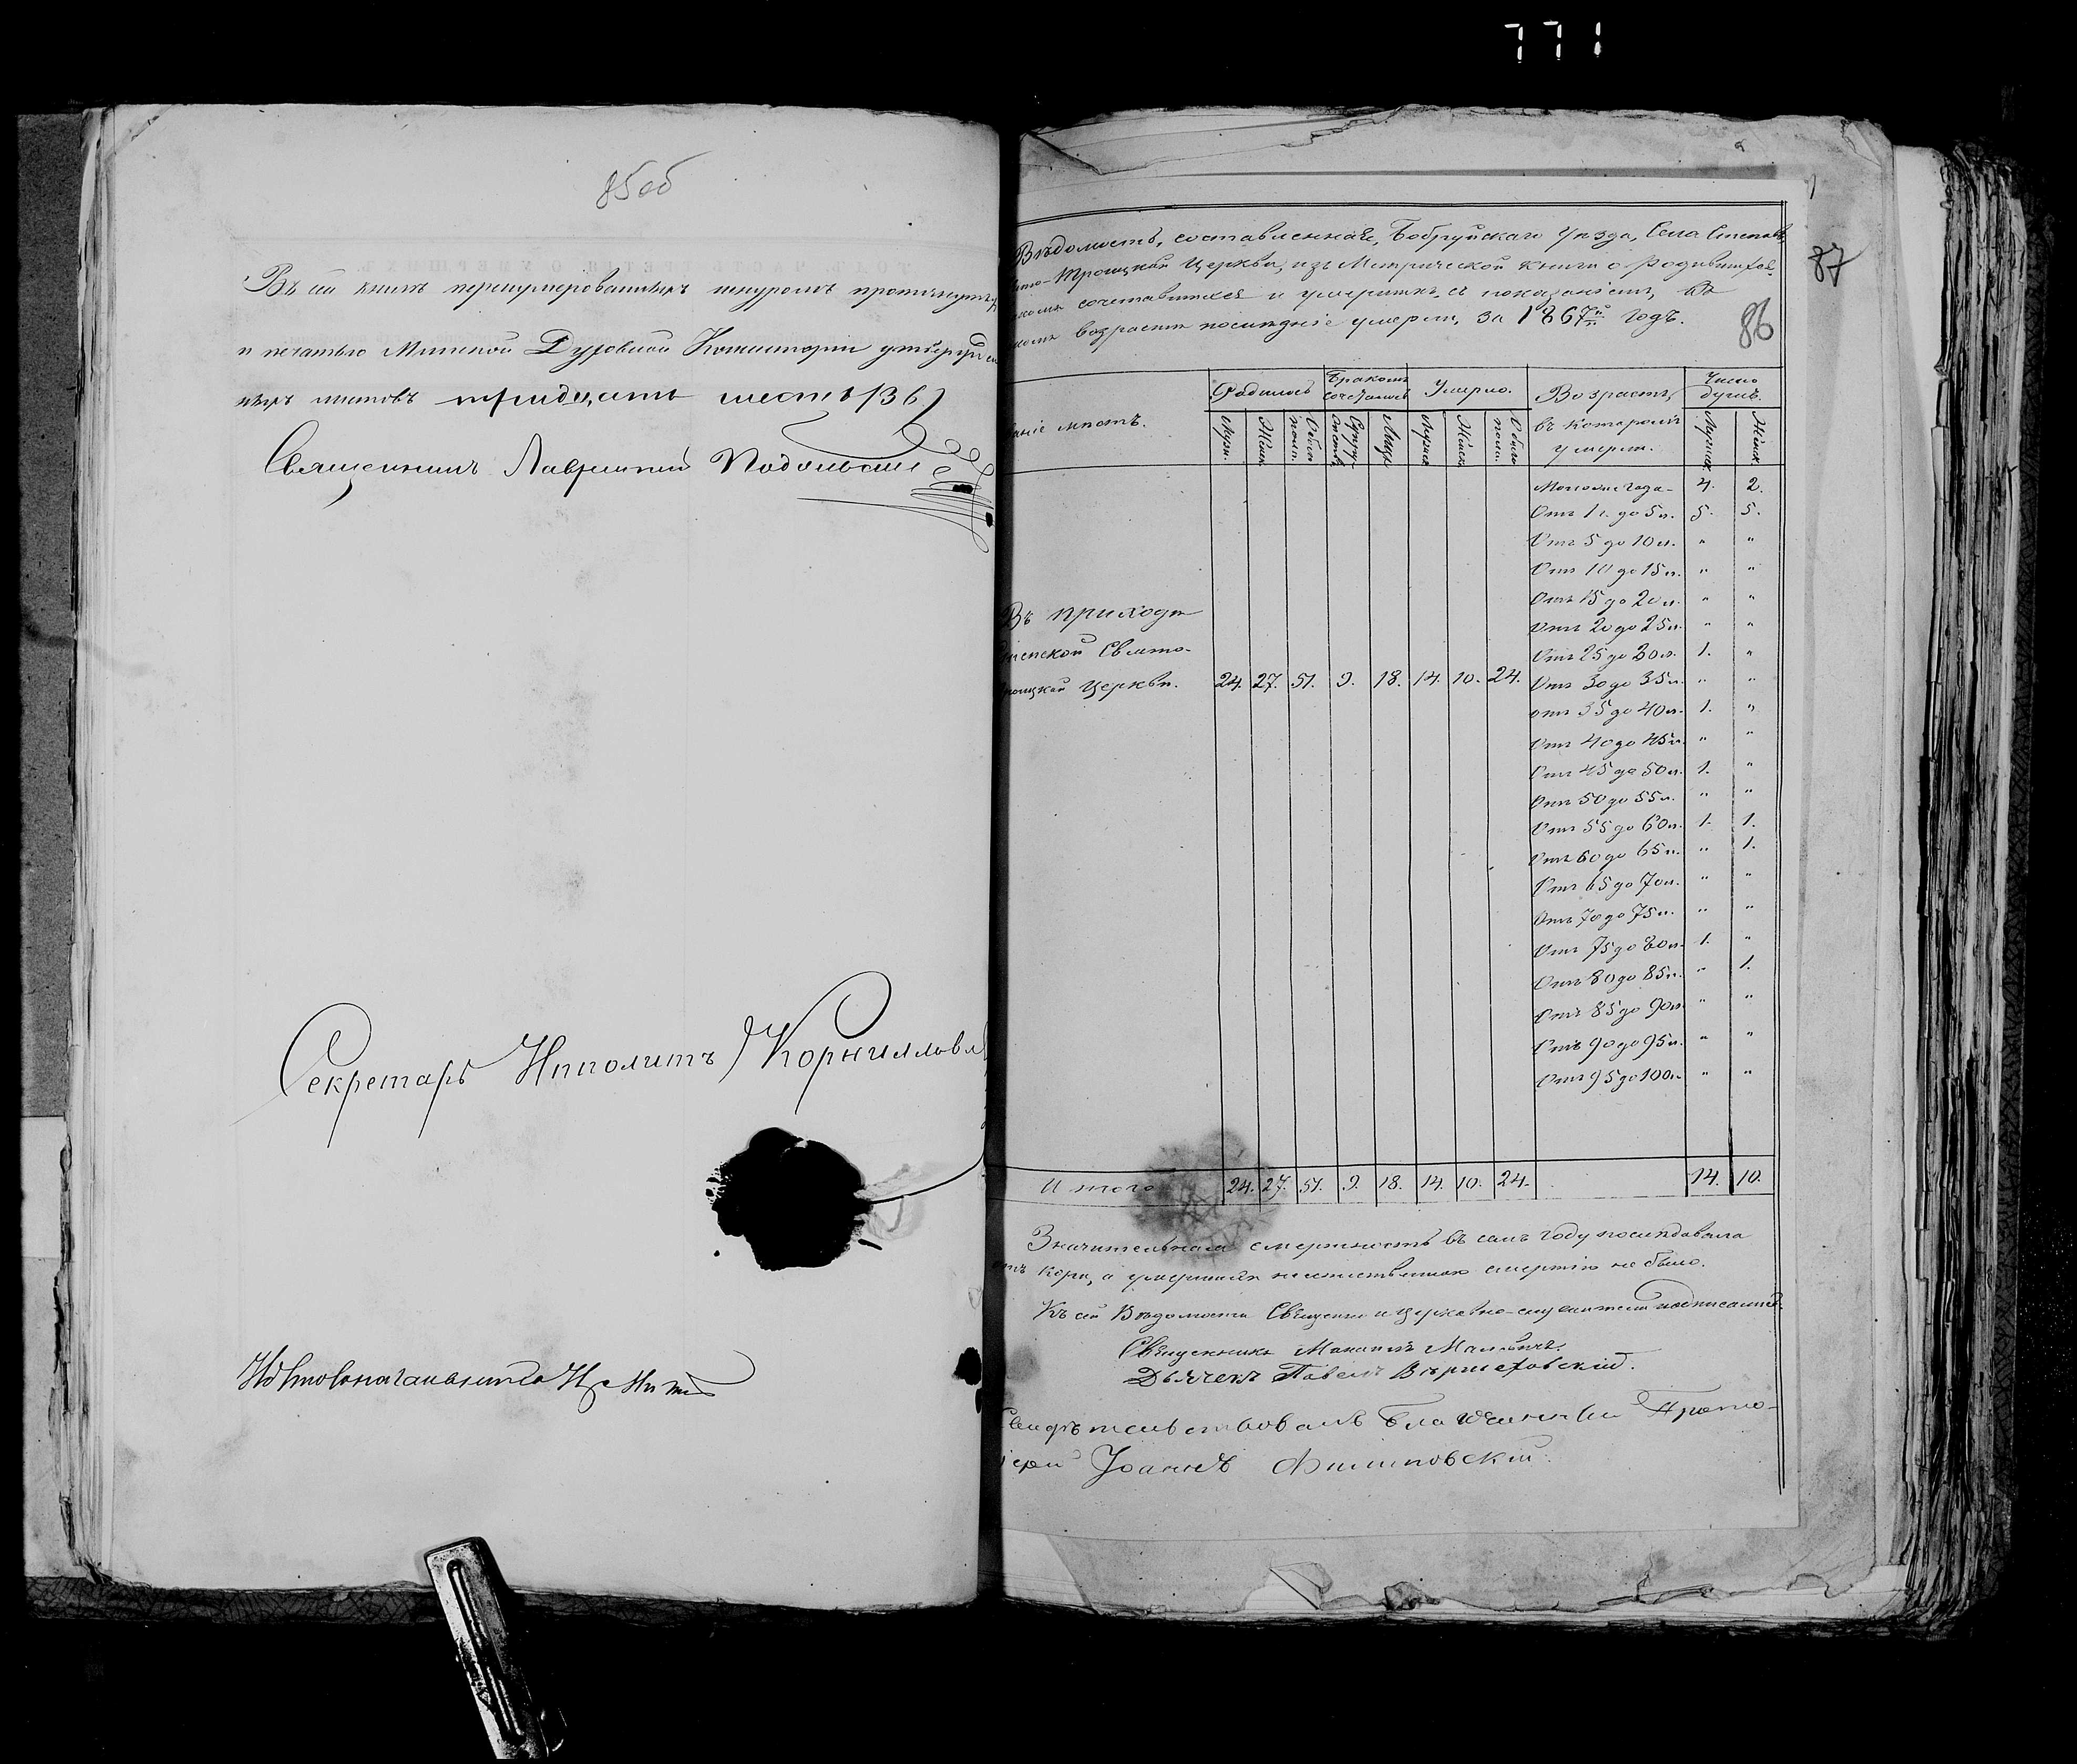 771
85об
Въ сей книгѣ перенумерованныхъ шнуромъ протянутыхъ
и печатью Минской Духовной Консисторіи утвержден
ныхъ листовъ тридцать шесть /36/
Священникъ Лаврентій Подольскі
Секретарь Ипполитъ Корниллов
87
86
Вѣдомость, составленная, Бобруйскаго Уѣзда, Села
Троицкой Церкви, изъ Метрической книги о Родивших
сочетавшихся и умершихъ, съ показаніемъ, въ
возрастѣ послѣдніе умерли, за 1867й годъ.
аніе мѣстъ.
Родилось
Бракомъ сочеталось
Умерло.
Возрастъ,
въ которомъ
умерли.
Число
душъ.
Мужн.
Женск
Обоего полн.
Супружествъ
Лицъ
Мужск
Женск
Обоего полн.
Мужеск.
Женск.
Моложе года - 4. 2.
Отъ 1 г. до 5 л. 5. 5.
Отъ 5 до 10 л. " "
Отъ 10 до 15 л. " "
Отъ 15 до 20 л. " "
Отъ 20 до 25 л. " "
Отъ 25 до 30 л. 1. "
Въ приходѣ
Свято-
Церкви. 24. 27. 51. 9. 18. 14. 10. 24.
Отъ 30 до 35 л. " "
отъ 35 до 40 л. 1. "
Отъ 40 до 45 л. " "
Отъ 45 до 50 л. 1. "
Отъ 50 до 55 л. " "
Отъ 55 до 60 л. 1. 1.
Отъ 60 до 65 л. " 1.
Отъ 65 до 70 л. " "
Отъ 70 до 75 л. " "
Отъ 75 до 80 л. 1. "
Отъ 80 до 85 л. " 1.
Отъ 85 до 90 л. " "
Отъ 90 до 95 л. " "
Отъ 95 до 100 л. " "
Итого 24. 27. 51. 9. 18. 14. 10. 24. 14. 10.
Значительная смертность въ семъ году послѣдовала
отъ кори, а умершихъ неестественною смертію не было.
Къ сей Вѣдомости Священно и церковно-служители подписались
Священникъ
Дьячекъ Павелъ
Свидѣтельствовалъ Благочинный Прото-
іерей Іоаннъ Филиповскій.